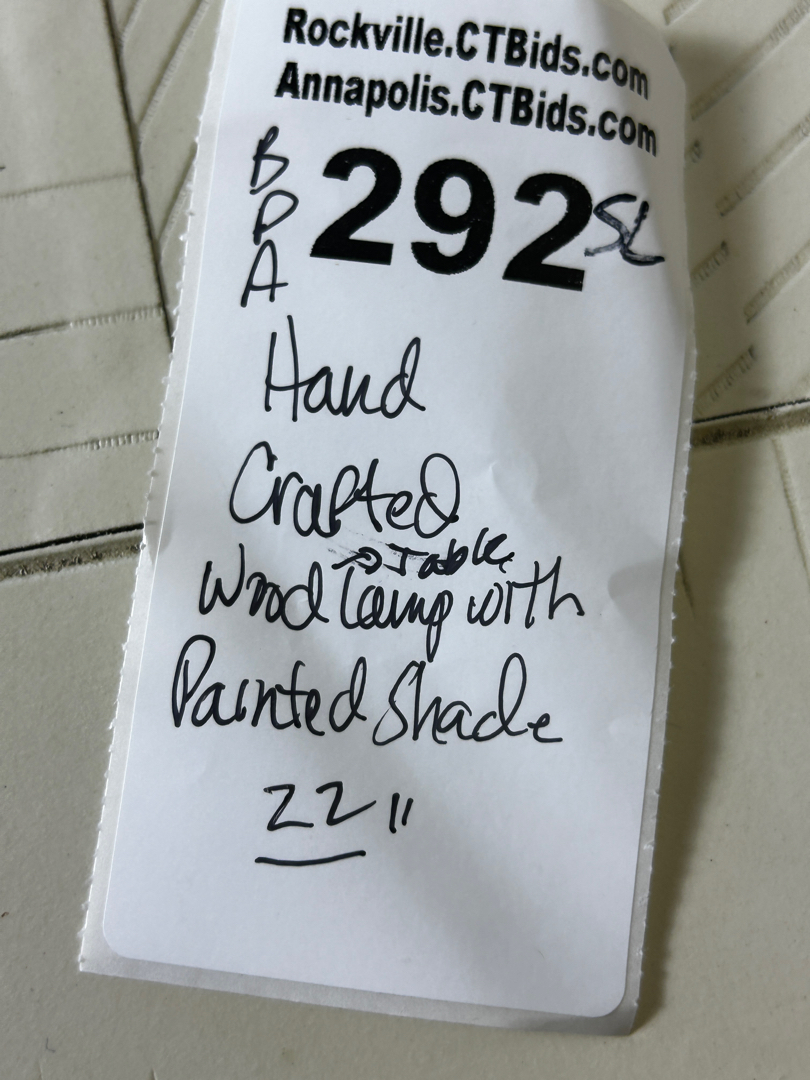 Rockville.CTBids.com
Annapolis.CTBids.com
B
P
A
292 SL
Hand
Crafted
Table
Wood Lamp with
Painted Shade
22"